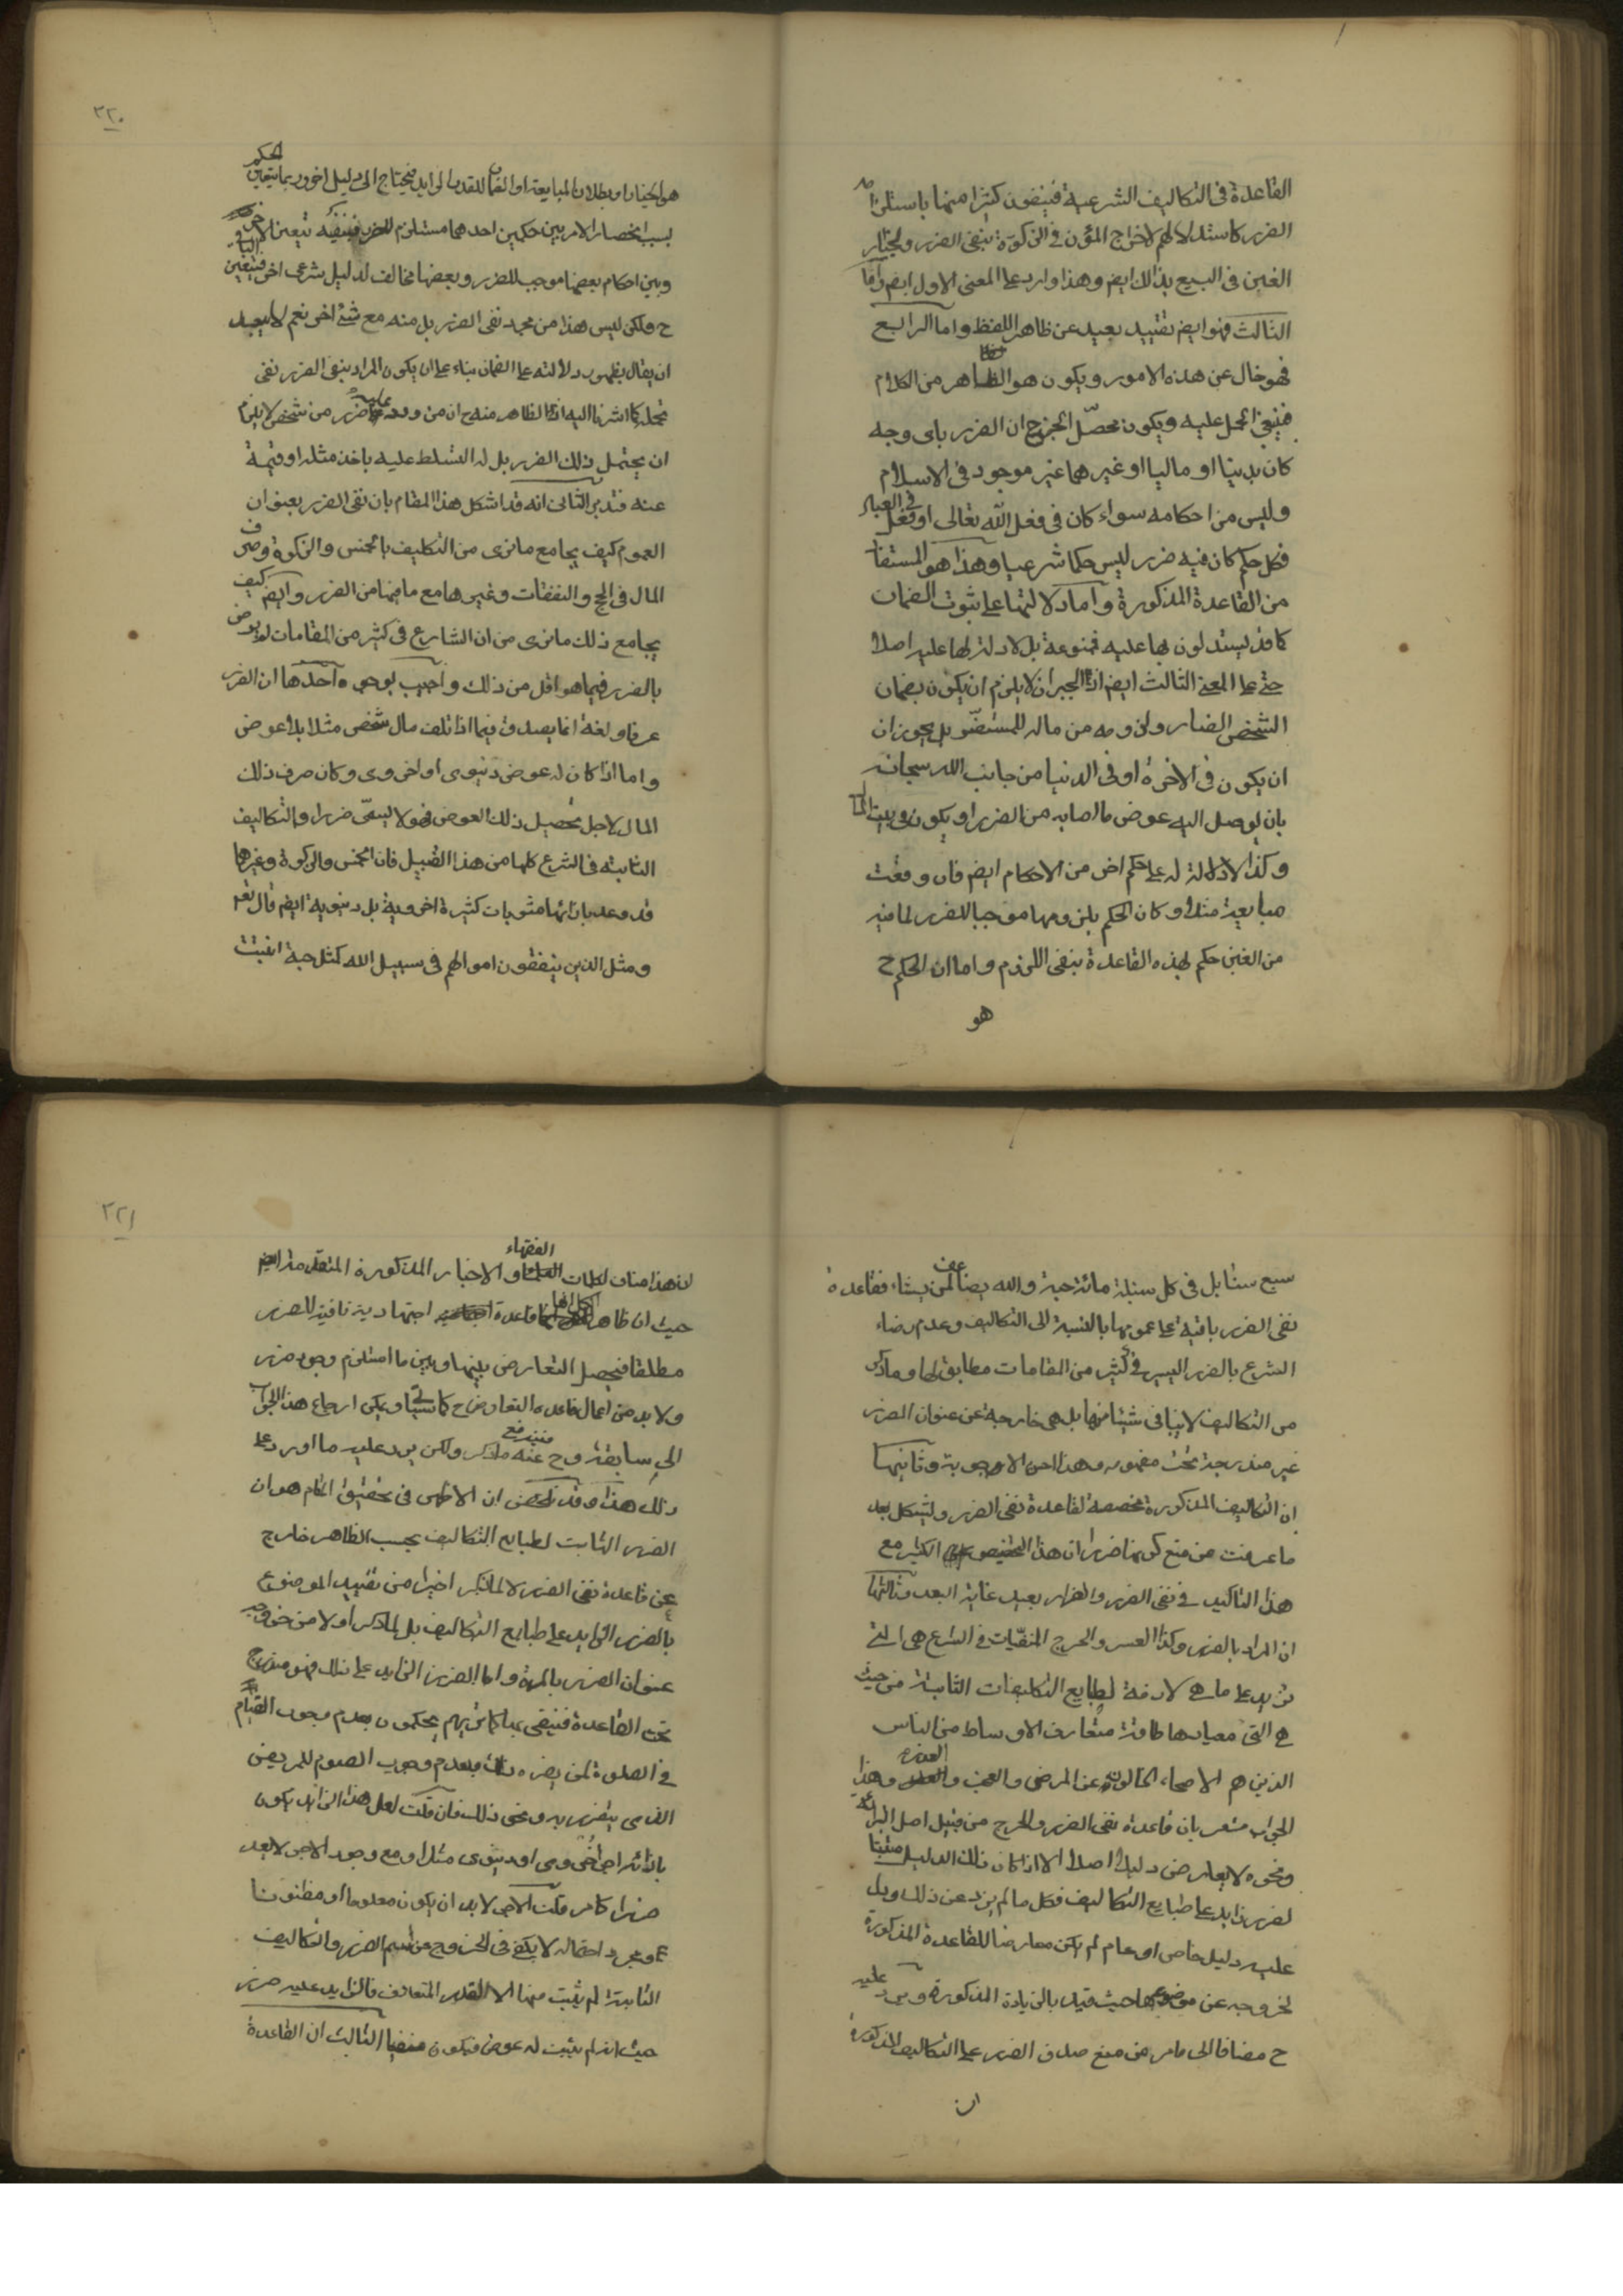 القاعدة فى التكاليف الشرعية فينفون كثيرا منها باستلزام
الضرر كاستدلالهم لاخراج المؤن فى الزكوة بنفى الضرر ولخيار
الغبن فى البيع بذالك ايضم وهذا وارد على المعنى الاول ايضم واما
الثالث فهو ايضم تقييد بعيد عن ظاهر اللفظ واما الرابع
فهو خال عن هذه الامور ويكون هو الظاهر من الكلام
فينبغى الحمل عليه ويكون محصّل الخبر ح ان الضرر باى وجه
كان بدنيا او ماليا او غيرهما غير موجود فى الاسلام
وليس من احكامه سواء كان فى فعل الله تعالى او فى فعل العباد
فكل حكم كان فيه ضرر ليس حكما شرعيا وهذا هو المستفاد
من القاعدة المذكورة واما دلالتها على ثبوت الضمان
كما قد يستدلون بها عليه فممنوعة بل لا دلالة لها عليه اصلا
حتى على المعنى الثالث ايضم اذ الجبران لا يلزم ان يكون بضمان
الشخص الضار ولزومه من ماله للمستضرّ بل يجوز ان
ان يكون فى الاخرة او فى الدنيا من جانب الله سبحانه
بان يوصل اليه عوض ما اصابه من الضرر او يكون من بيت المال
وكذا لا دلالة له على حكم اخر من الاحكام ايضم فان وقعت
مبايعة مثلا وكان الحكم بلزومها موجبا للضرر لما فيه
من الغبن حكم لهذه القاعدة بنفى اللزوم واما ان الحكم ح
هو
٢٢٠
هو الخيار او بطلان المبايعة او الضمان للقدر الزايد فيحتاج الى دليل اخر وربما يتعين الحكم
بسبب انحصار الامر بين حكمين احدهما مستلزم للضرر فبنفيه يتعين الاخر
وبين احكام بعضها موجب للضرر وبعضها مخالف لدليل شرعى اخر فيتعين الباقى
ح ولكن ليس هذا من مجرد نفى الضرر بل منه مع شئ اخر نعم لا يبعد
ان يقال بظهور دلالته على الضمان بناء على ان يكون المراد بنفى الضرر نفى
تحمله كما اشرنا اليه اذ الظاهر منه ح ان من ورد عليه ضرر من شخص لا يلزم
ان يحتمل ذلك الضرر بل له التسلط عليه باخذ مثله او قيمة
عنه فتدبر الثانى انه قد اشكل هذا المقام بان نفى الضرر بعنوان
العموم كيف يجامع ما نرى من التكليف بالخمس والزكوة وصرف
المال فى الحج والنفقات وغيرها مع ما فيها من الضرر وايضم كيف
يجامع ذلك ما نرى من ان الشارع فى كثير من المقامات لم يرض
بالضرر فيما هو اقل من ذلك واجيب بوجوه احدها ان الضرر
عرفا ولغة انما يصدق فيما اذا تلف مال شخص مثلا بلا عوض
واما اذا كان له عوض دنيوى او اخروى وكان صرف ذلك
المال لاجل تحصيل ذلك العوض فهو لا يسمّى ضررا والتكاليف
الثابتة فى الشرع كلها من هذا القبيل فان الخمس والزكوة وغيرها
قد وعد بازائها مثوبات كثيرة اخروية بل دنيوية ايضم قال تعم
ومثل الذين ينفقون اموالهم فى سبيل الله كمثل حبة انبتت
سبع سنابل فى كل سنبلة مائة حبة والله يضاعف لمن يشاء فقاعدة
نفى الضرر باقية على عمومها بالنسبة الى التكاليف وعدم رضاء
الشرع بالضرر اليسير فى كثير من المقامات مطابق لها وما ذكر
من التكاليف لا ينافى شيئا منها بل هى خارجة عن عنوان الضرر
غير مندرجة تحت مفهومه وهذا احد الاجوبة وثانيها
ان التكاليف المذكورة مخصصة لقاعدة نفى الضرر ويشكل بعد
ما عرفت من منع كونها ضررا ان هذا التخصيص الكثير مع
هذا التاكيد فى نفى الضرر والضرار بعيد غاية البعد وثالثها
ان المراد بالضرر وكذا العسر والحرج المنفيّات فى الشرع هى التى
تزيد على ما هى لازمة لطبايع التكليفات الثابتة من حيث
هى التى معيارها طاقة متعارف الاوساط من الناس
الذين هم الاصحاء الخالون عن المرض والعجز والعذر وهذا
الجواب مشعر بان قاعدة نفى الضرر والحرج من قبيل اصل البرائة
ونحوه لا يعارض دليلا اصلا الا اذا كان ذلك الدليل مثبتا
لضرر زايد على طبايع التكاليف فكل ما لم يزد عن ذلك ودل
عليه دليل خاص او عام لم يكن معارضا للقاعدة المذكورة
لخروجه عن موضوعها حيث قيد بالزيادة المذكورة ويرد عليه
ح مضافا الى ما مر من منع صدق الضرر على التكاليف المذكورة
ان
٢٢١
ان هذا مناف لكلمات الفقهاء والاخبار المذكورة المتقدمة ايضم
حيث ان ظاهر الكل انها قاعدة اجتهادية نافية للضرر
مطلقا فيحصل التعارض بينها وبين ما استلزم وجود ضرر
ولابد من اعمال قاعدة التعارض ح كما سياتى ويمكن ارجاع هذا الجواب
الى سابقه وح فيندفع عنه ما ذكر ولكن يرد عليه ما اورد على
ذلك هذا وقد تلخص ان الاظهر فى تحقيق المقام هو ان
الضرر الثابت لطبايع التكاليف بحسب الظاهر خارج
عن قاعدة نفى الضرر لا لما ذكر اخيرا من تقييد الموضوع
بالضرر الزايد على طبايع التكاليف بل لما ذكر اولا من خروجه
عنوان الضرر بالمرة واما الضرر الزايد على ذلك فهو مندرج
تحت القاعدة فينفى بها كما تريهم يحكمون بعدم وجوب القيام
فى الصلوة لمن يضره ذلك وبعدم وجوب الصوم للمريض
الذى يتضرر به ونحو ذلك فان قلت لعل هذا الزايد يكون
بازائه اجر اخروى او دنيوى مثلا ومع وجود الاجر لا يعد
ضررا كما مر قلت الاجر لابد ان يكون معلوما او مظنونا
ومجرد احتماله لا يكفى فى الخروج عن اسم الضرر والتكاليف
الثابتة لم يثبت منها الا القدر المتعارف فالزايد عليه ضرر
حيث انه لم يثبت له عوض فيكون منفيا الثالث ان القاعدة